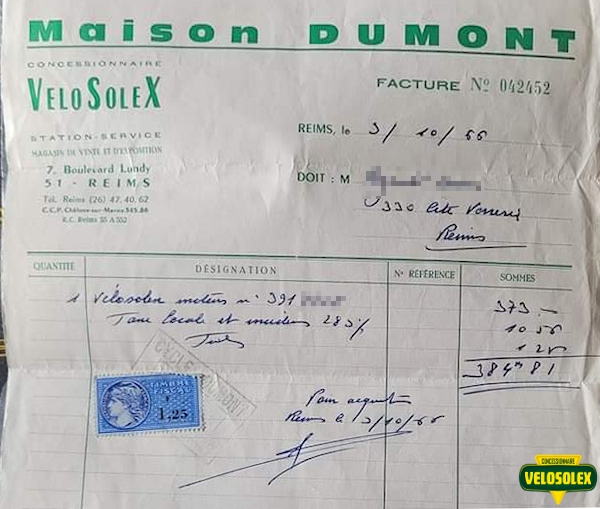 Maison DUMONT
CONCESSIONNAIRE
VELOSOLEX
FACTURE Nº 042452
STATION-SERVICE
MAGASIN DE VENTE ET D'EXPOSITION
REIMS, le 3/10/66
7, Boulevard Lundy
51 - REIMS
DOIT : M
Tél. Reims (26) 47.40.62
C.C.P. Châlons-sur-Marne 345.86
R.C. Reims 55 A 552
330 Cité Verrerie
Reims
QUANTITÉ DÉSIGNATION Nº RÉFÉRENCE SOMMES
1 Vélosolex moteur n° 391 373.-
Taxe locale et 283% 10 56
1 25
384 81
TIMBRE FISCAL
1,25
CYCLES DUMONT
Pour acquit
Reims le 3/10/66
CONCESSIONNAIRE
VELOSOLEX